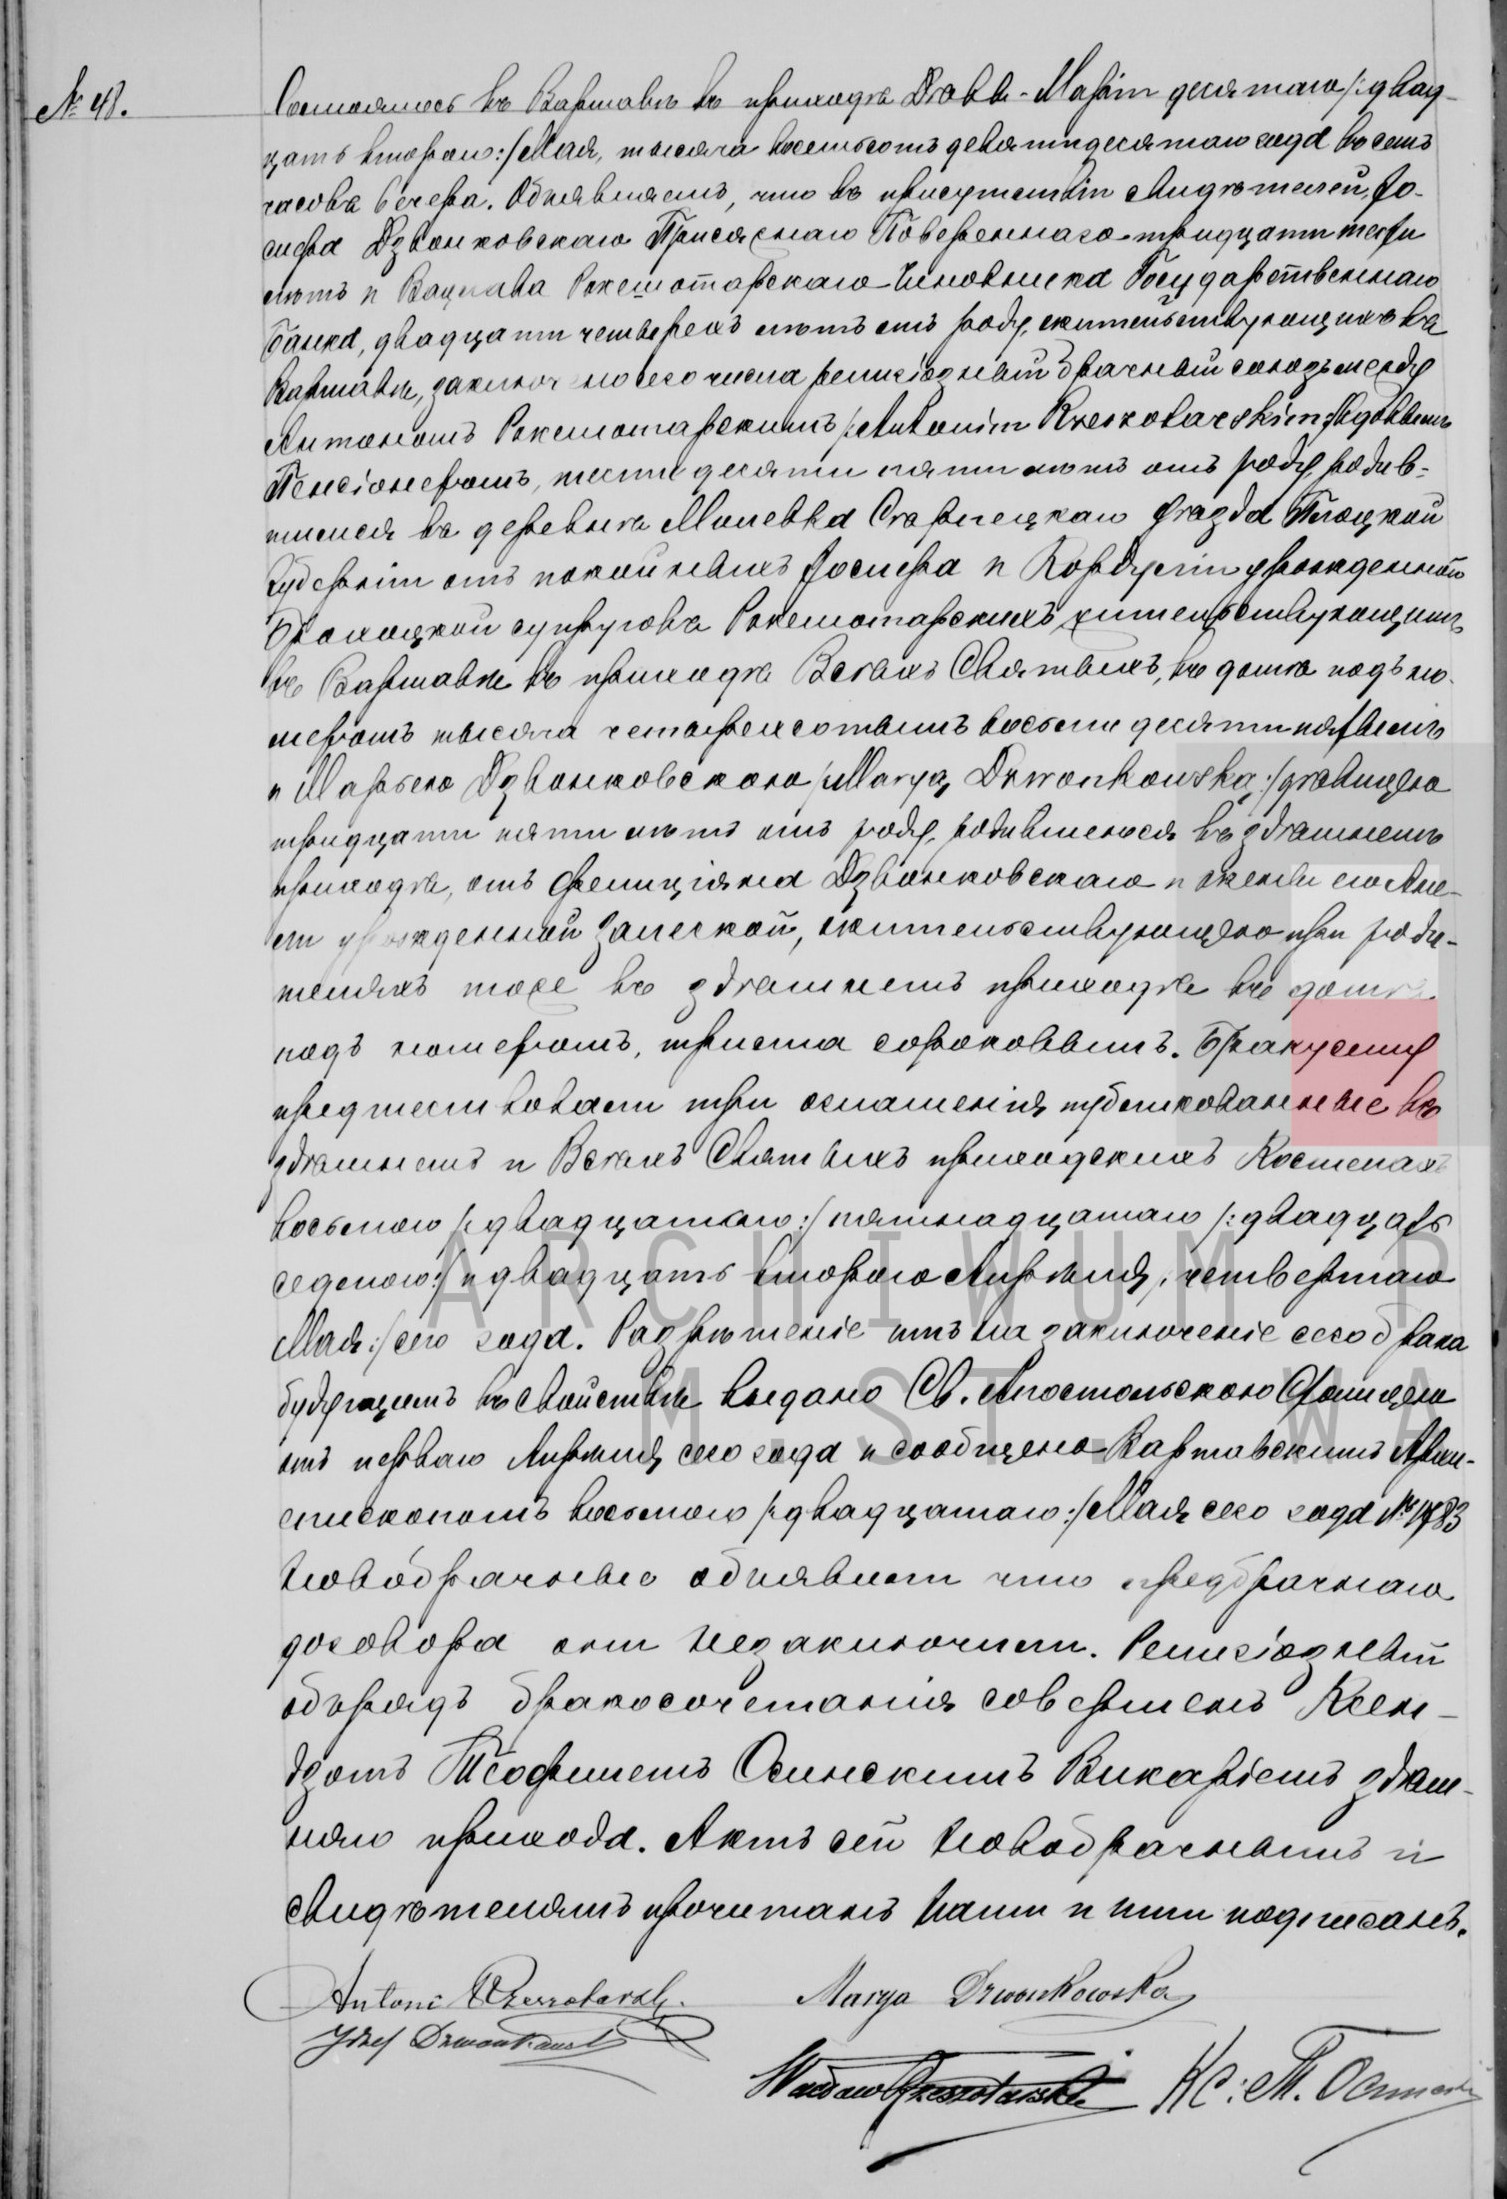 № 48.
Состоялось въ Варшавѣ въ приходѣ Дѣвы-Маріи десятаго /:двад-
цать второго:/ Мая, тысяча восемьсотъ девяностодесятаго года въ семь
часовъ вечера. Объявляемъ, что въ присутствіи свидѣтелей, Іо-
сифа Дзвонковскаго Присяжнаго Повѣреннаго тридцати
лѣтъ и Вацлава Ржешотарскаго Чиновника Государственнаго
Банка, двадцати четырехъ лѣтъ отъ роду, жительствующихъ въ
Варшавѣ, заключенъ сего числа религіозный брачный союзъ между
Антономъ Ржешотарскимъ /:Antonim Rzeszotarskim:/ вдовцемъ
Пенсіонеромъ, шестидесяти пяти лѣтъ отъ роду, родив-
шимся въ деревнѣ Милевка Серпецкаго уѣзда Плоцкой
Губерніи отъ покойныхъ Іосифа и урожденной
супруговъ Ржешотарскихъ, жительствующимъ
въ Варшавѣ въ приходѣ Всѣхъ Святыхъ, въ домѣ подъ но-
меромъ тысяча четырехсотымъ восемьдесятъ первымъ
и Марьею Дзвонковскою /:Maryą Dzwonkowską:/ дѣвицею
тридцати пяти лѣтъ отъ роду, родившеюся въ здѣшнемъ
приходѣ, отъ Фелиціяна Дзвонковскаго и жены его Ане-
ли урожденной Залеской, жительствующею при роди-
теляхъ тоже въ здѣшнемъ приходѣ въ домѣ
подъ номеромъ, триста сороковымъ. Браку сему
предшествовали три оглашенія публикованные въ
здѣшнемъ и Всѣхъ Святыхъ приходскихъ Костелахъ
восьмого /:двадцатаго:/ пятнадцатаго /:двадцать
седмого:/ и двадцать второго Апрѣля /:четвертаго
Мая:/ сего года. Разрѣшеніе имъ на заключеніе сего брака
будущимъ въ свойствѣ выдано Св. Апостольскою Столицею
отъ перваго Апрѣля сего года и сообщено Варшавскимъ Архи-
епископомъ восьмого /:двадцатаго:/ Мая сего года № 1783
Новобрачные объявили что предбрачнаго
договора они незаключили. Религіозный
обрядъ бракосочетанія совершенъ Ксен-
дзомъ Теофилемъ Осинскимъ Викаріемъ здѣш-
няго прихода. Актъ сей Новобрачнымъ и
свидѣтелямъ прочитанъ Нами и ими подписанъ.
Antoni Rzeszotarski Marya Dzwonkowska
Józef Dzwonkowski
Wacław Rzeszotarski Кс: Т. Осинскій
ARCHIWUM P
M. ST. WA